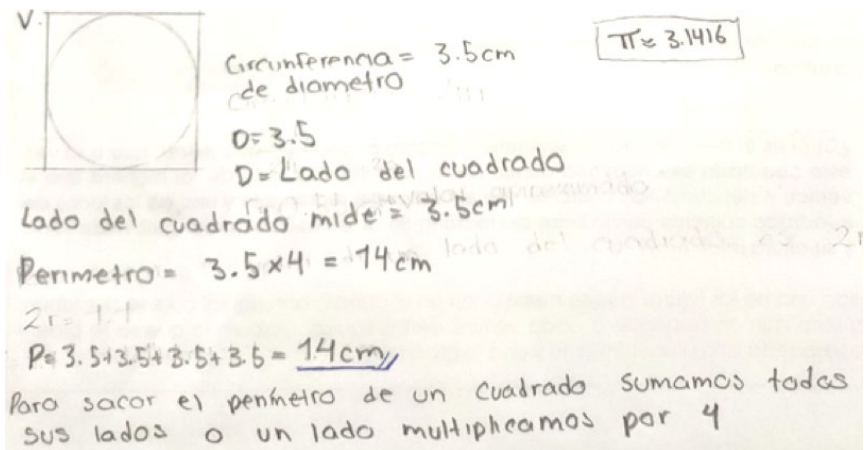 V.
π≈ 3.1416
Circunferencia = 3.5cm
de diametro
D= 3.5
D= Lado del cuadrado
Lado del cuadrado mide = 3.5cm
Perimetro = 3.5×4 = 14cm
2r =
P= 3.5+3.5+3.5+3.5 = 14cm
Para sacar el perímetro de un cuadrado sumamos todos
sus lados o un lado multiplicamos por 4